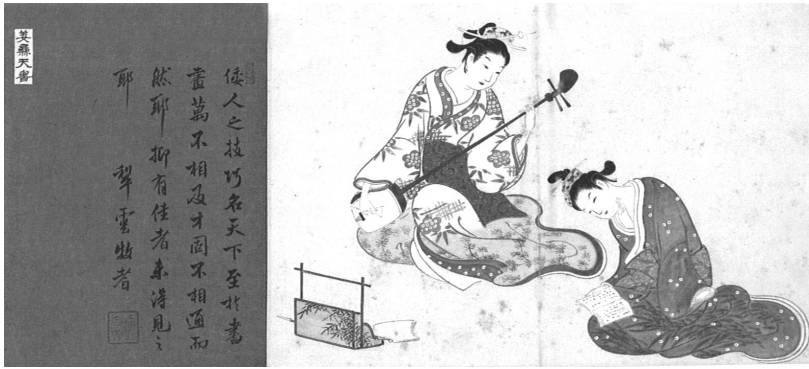 倭人之技巧名天下至於書
畫萬不相及才固不相通而
然耶抑有佳者未得見之
耶 犂雲牧者
天書